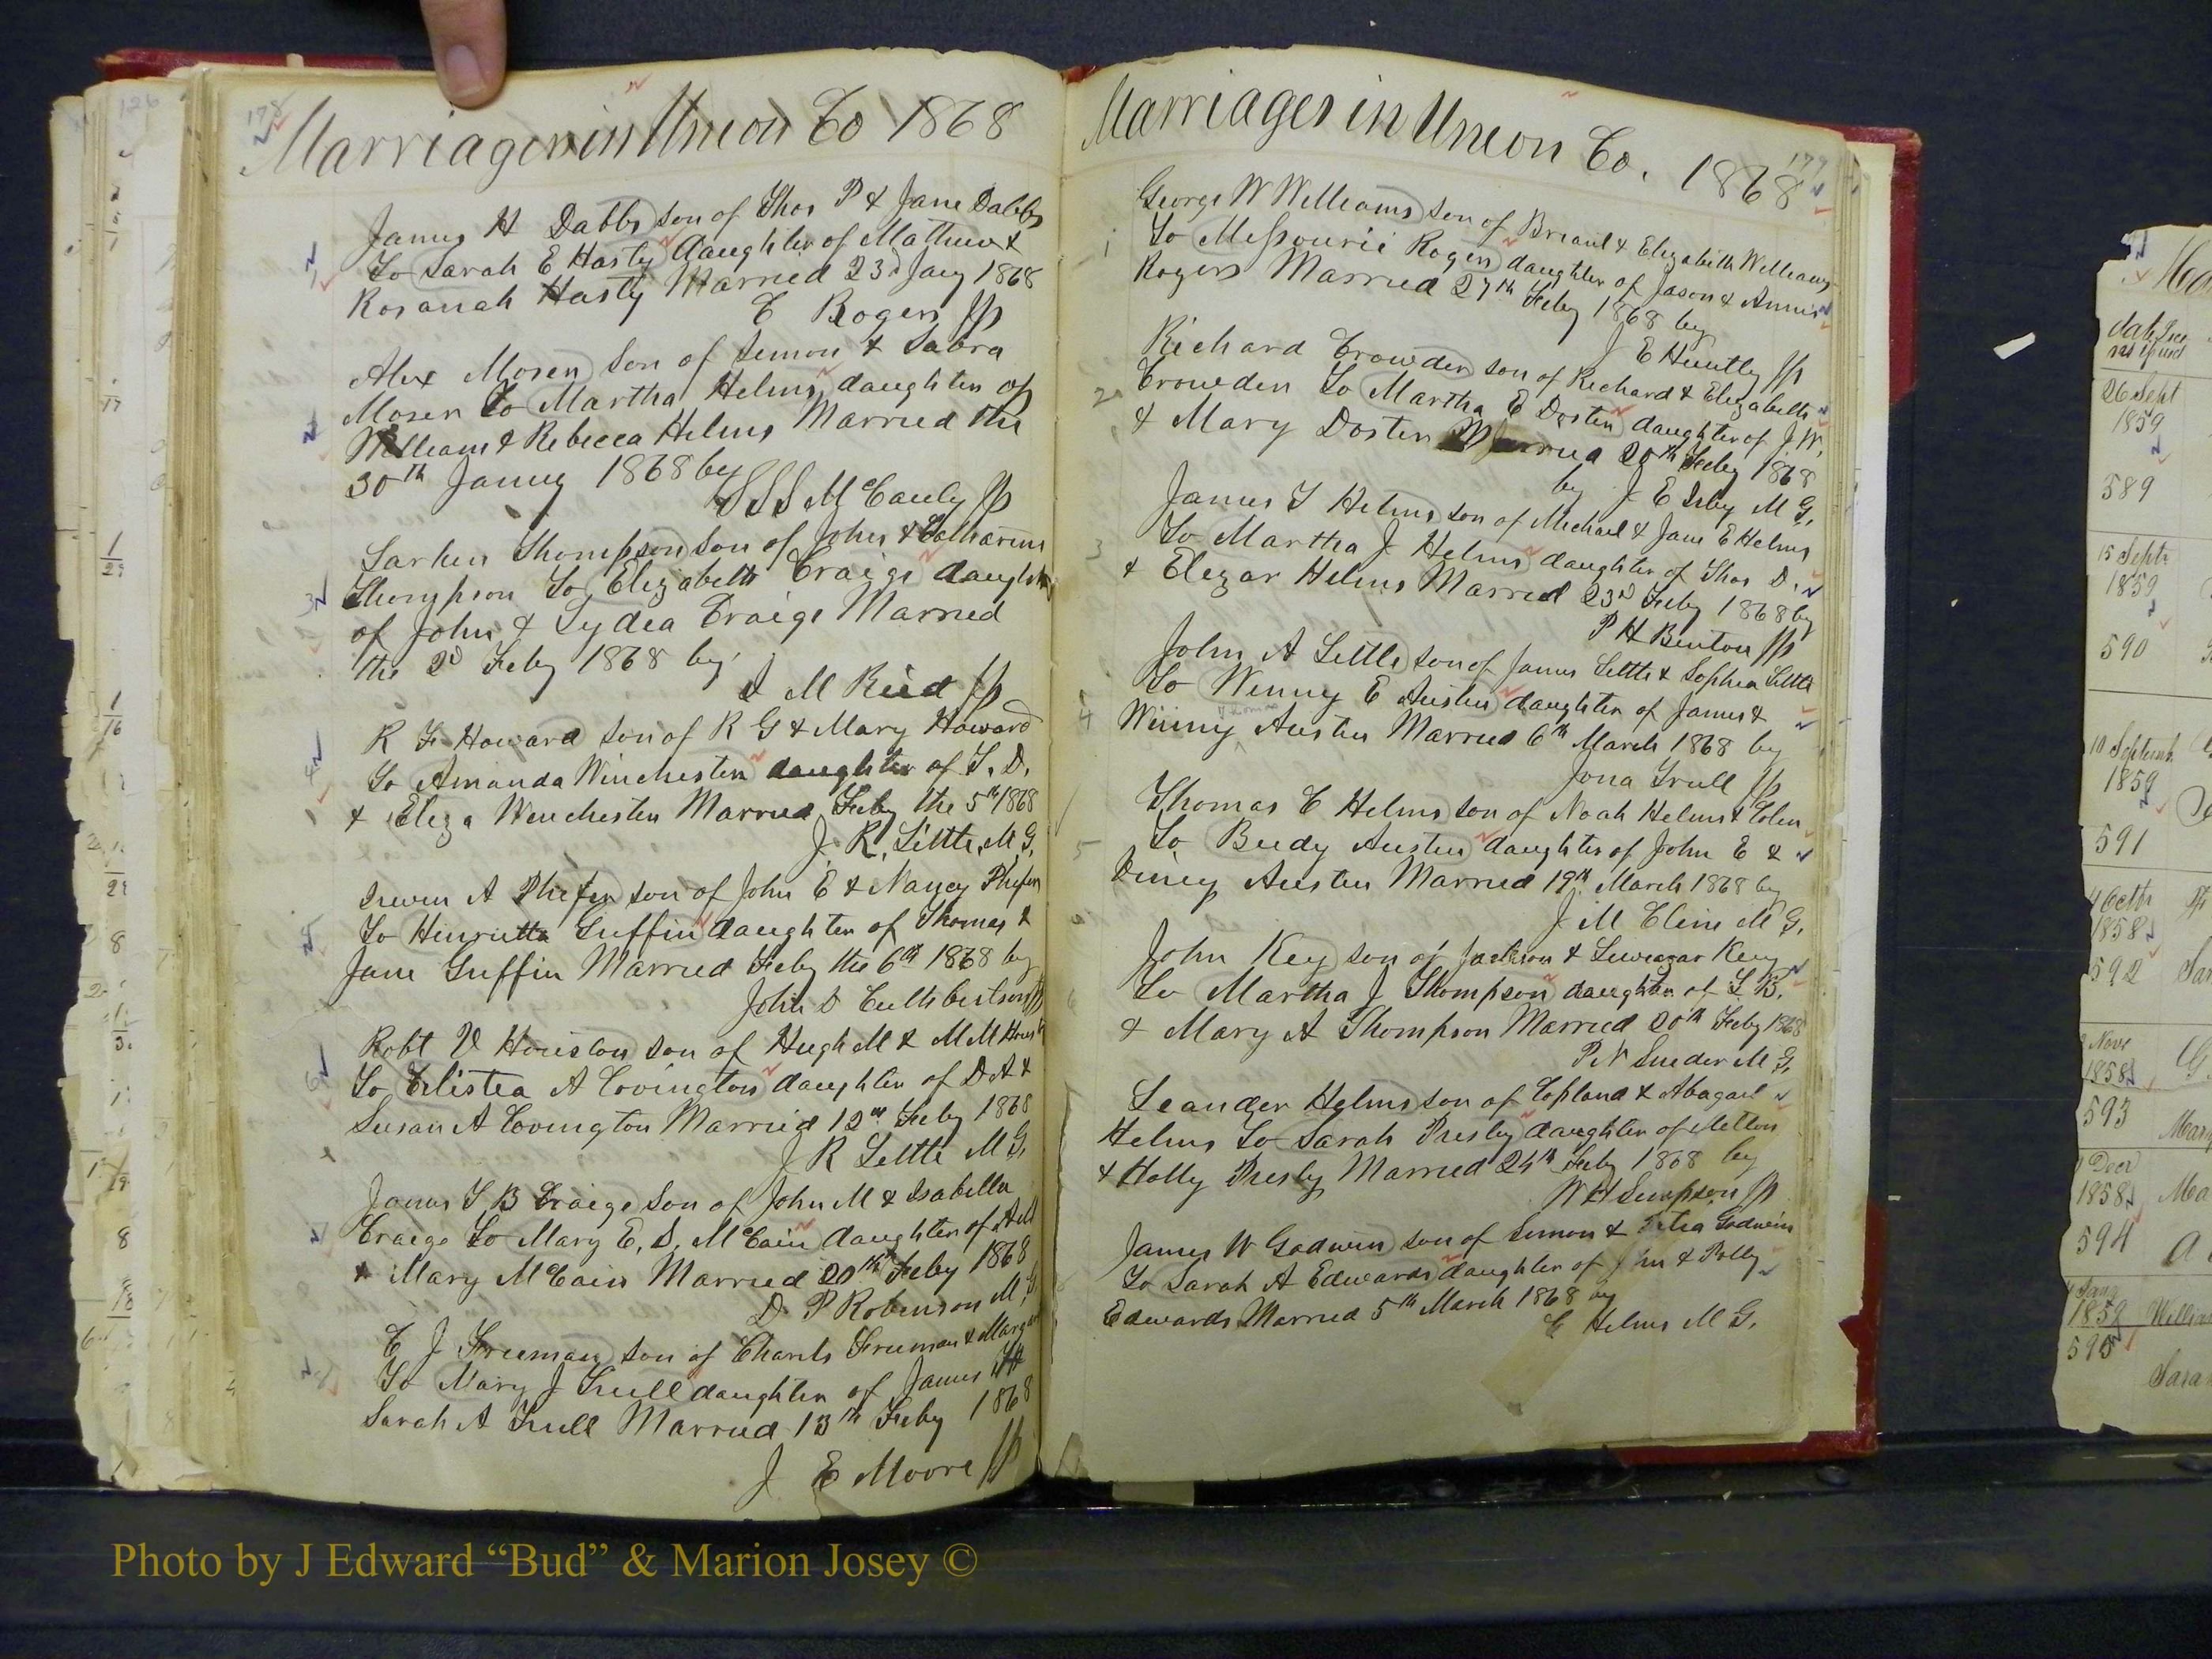 178
Marriages in Union Co 1868
James H Dabbs son of Thos P & Jane Dabbs
To Sarah E Hasty daughter of Mathew &
Rosanah Hasty Married 23d Jany 1868
C Rogers JP
Alex Moser son of Simon & Sabra
Moser to Martha Helms daughter of
William & Rebecca Helms Married the
30th Janny 1868 by
S S S McCauly JP
Larken Thompson son of John & Catharine
Thompson To Elizabeth Craige daughter
of John & Lydea Craige Married
the 2d Feby 1868 by
J M Reid JP
R F Howard son of R G & Mary Howard
To Amanda Winchester daughter of T. D.
& Eliza Winchester Married Feby the 5th 1868
J. R. Little, M G,
A Phifer son of John E & Nancy Phifer
To Henrietta Griffin daughter of Thomas &
Jane Griffin Married Feby the 6th 1868 by
John D Cuthbertson JP
Robt V Houston son of Hugh M & M M Houst
To Celistia A Covington daughter of D A &
Susan A Covington Married 12th Feby 1868
J R Little M G,
James T B Craige son of John M & Isabella
Craige To Mary E. S. McCain daughter of
& Mary McCain Married 20th Feby 1868
D P Robinson M, G
C J Freeman son of Charls Freeman & Margar
To Mary J Trull daughter of James
Sarah A Trull Married 13th Feby 1868
J E Moore JP
179
Marriages in Union Co. 1868
George W Williams son of Briant & Elizabeth Williams
1 To Missourie Rogers daughter of Jason & Annis
Rogers Married 27th Feby 1868 by
J E Huntly JP
Richard Crowder son of Richard & Elizabeth
2 Crowder To Martha E Doster daughter of J. W.
& Mary Doster Married 20th Feby 1868
by J E Irby M G,
James T Helms son of Michael & Jane E Helms
3 To Martha J Helms daughter of Thos D.
& Elezar Helms Married 23d Feby 1868 by
P H Benton JP
John A Little son of James Little & Sophia Little
To Winny E Austin daughter of James &
4 Winny Austin Married 6th March 1868 by
Thomas
Jona Trull JP
Thomas C Helms son of Noah Helms &
5 To Beedy Austin daughter of John E &
Austin Married 19th March 1868 by
J M Cline M G.
John Key son of Jackson & Key
6 To Martha J Thompson daughter of L B.
& Mary A Thompson Married 20th Feby 1868
M G,
Leander Helms son of Copland & Abagail
Helms To Sarah Presley daughter of Melton
& Holly Presly Married 24th Feby 1868 by
W H Simpson JP
James W Godwin son of Simon & Godwin
To Sarah A Edwards daughter of & Polly
Edwards Married 5th March 1868 by
C Helms M G.
26 Sept
1859
589
15 Septr
1859
590
10 Septemb
1859
591
4 Octbr
1858
592
Nove
1858
593
Decr
1858
594
1859
595
126
Photo by J Edward “Bud” & Marion Josey ©